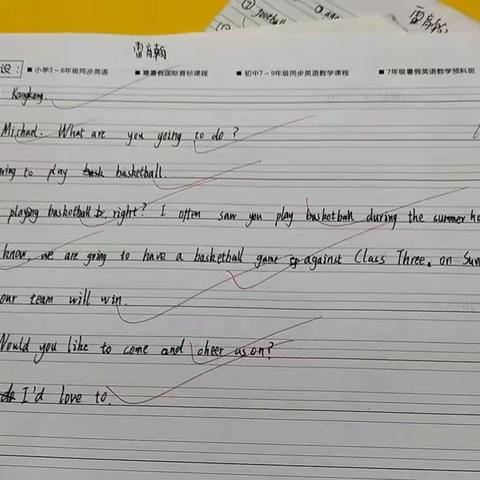 ② football
雷
设:
■ 小学3-6年级同步英语 ■ 寒暑假国际音标课程 ■ 初中7-9年级同步英语数学课程 ■ 7年级暑假英语数学预科班
Kangkang.
Michael. What are you going to do?
to play basketball.
playing basketball is right? I often saw you play basketball during the summer
know, we are going to have a basketball game against Class Three. on Sun
our team will win.
Would you like to come and cheer us on?
I'd love to.